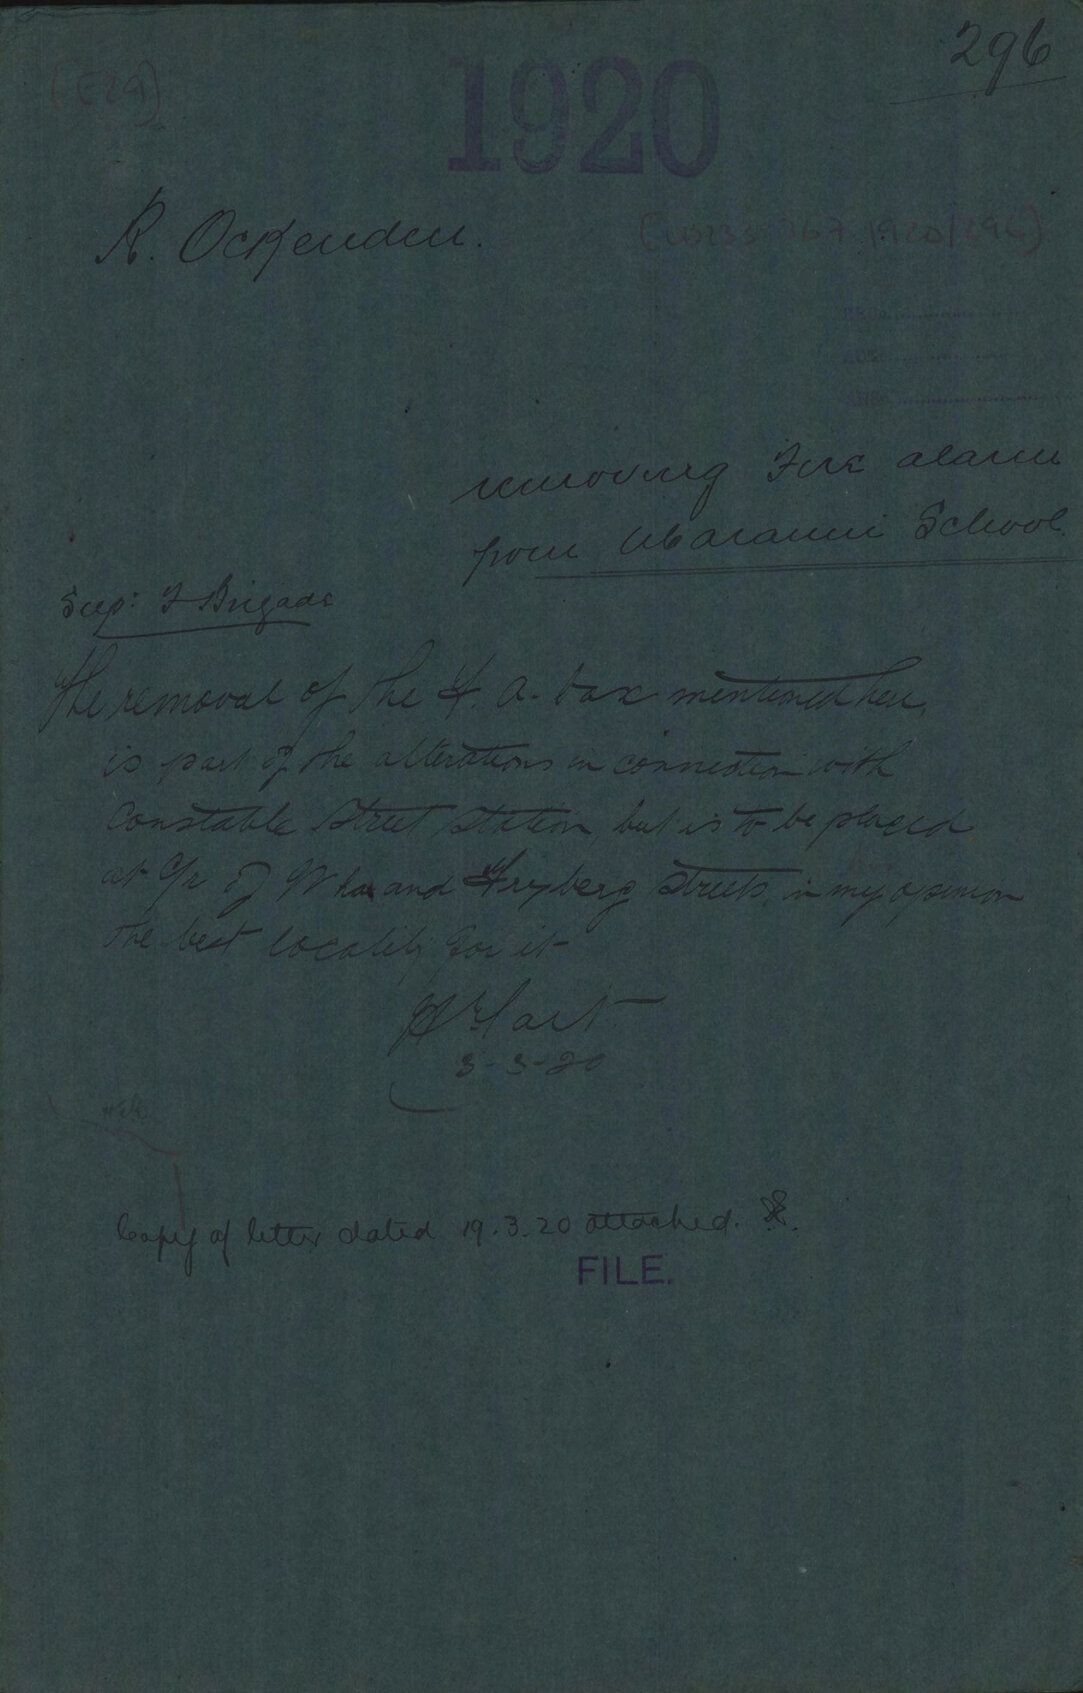 296
(E29)
1920
R. Ockenden.
removing Fire alarm
from Maranui School
Sup: F Brigade
The removal of the F. A. box mentioned here,
is part of the alterations in connection with
Constable Street Station, but is to be placed
at Cr of Wha and Freyberg Streets, in my opinion
the best locality for it
3-3-20
Copy of letter dated 19.3.20 attached.
FILE.